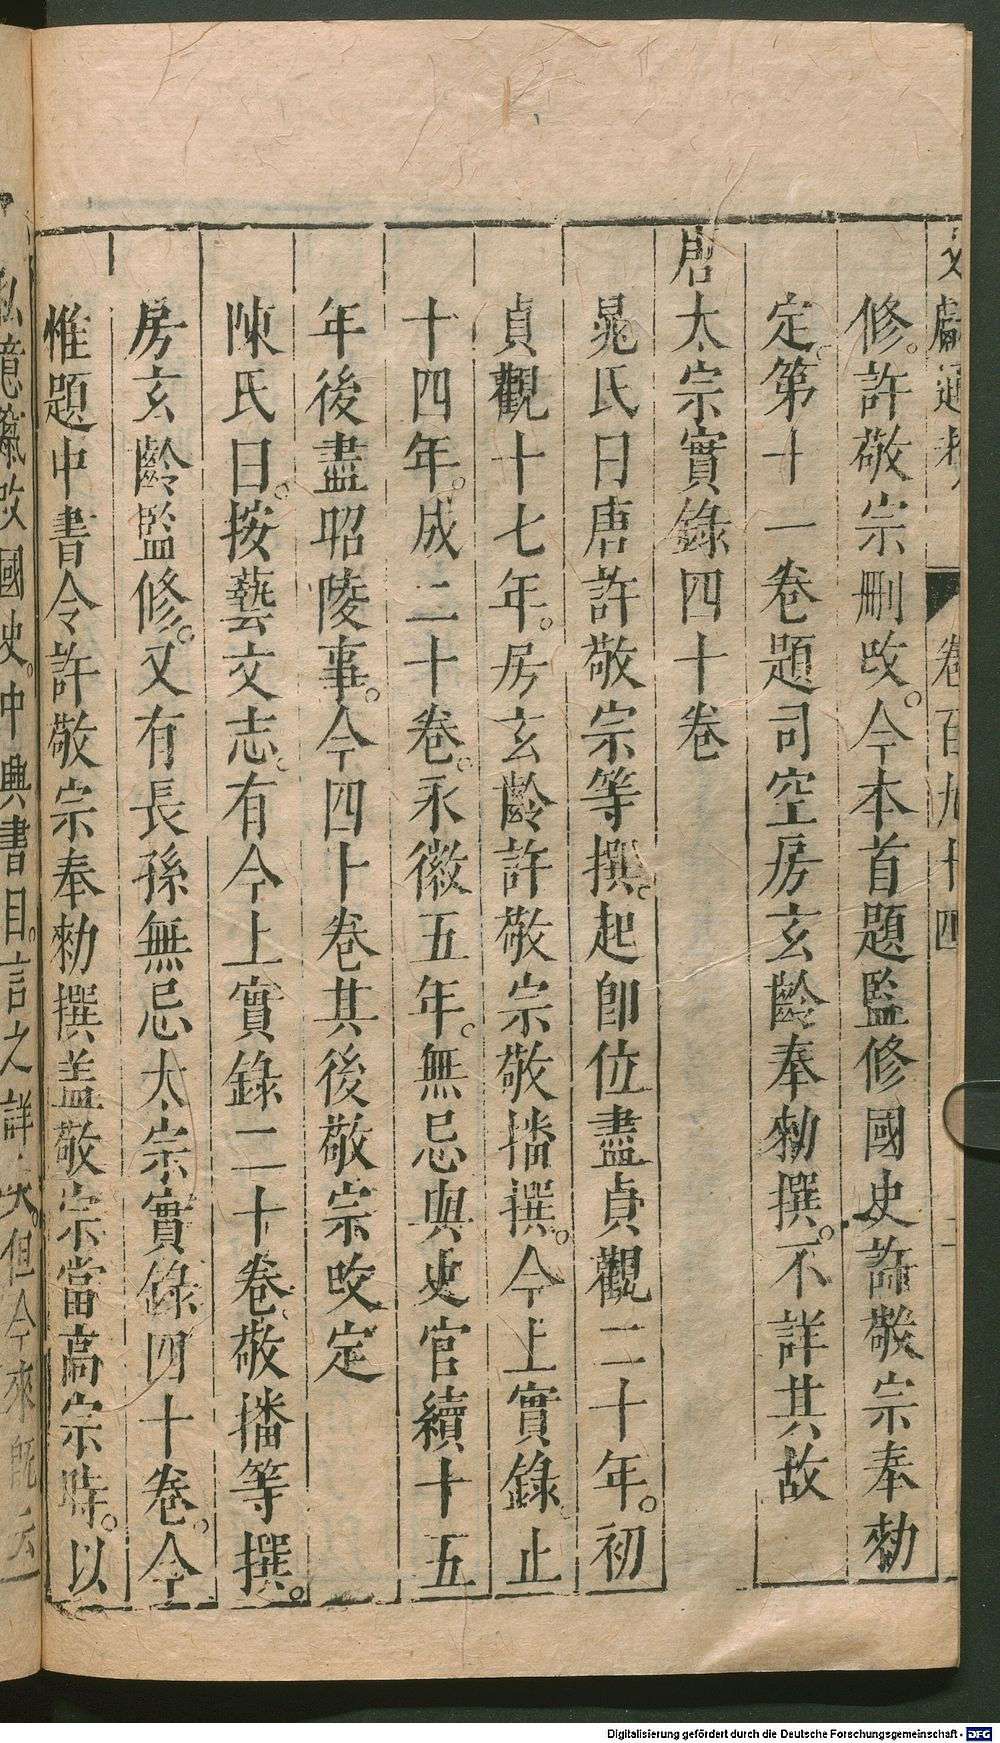 文獻通考 卷百九十四
修。許敬宗刪改。今本首題監修國史許敬宗奉勑
定。第十一卷題司空房玄齡奉勑撰。不詳其故
唐太宗實錄四十卷
晁氏曰唐許敬宗等撰。起卽位盡貞觀二十年。初
貞觀十七年。房玄齡許敬宗敬播撰。今上實錄。止
十四年。成二十卷。永徽五年。無忌與史官續十五
年後盡昭陵事。今四十卷其後敬宗改定
陳氏曰。按藝文志。有今上實錄二十卷。敬播等撰。
房玄齡監修。又有長孫無忌太宗實錄四十卷。今
惟題中書令許敬宗奉勑撰盖敬宗當高宗時。以
私意竄改國史。中興書目。言之詳矣。但今本既云
Digitalisierung gefördert durch die Deutsche Forschungsgemeinschaft - DFG